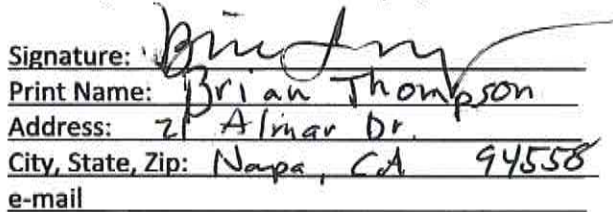 Signature:
Print Name: Brian Thompson
Address: 21 Almar Dr.
City, State, Zip: Napa, CA 94558
e-mail